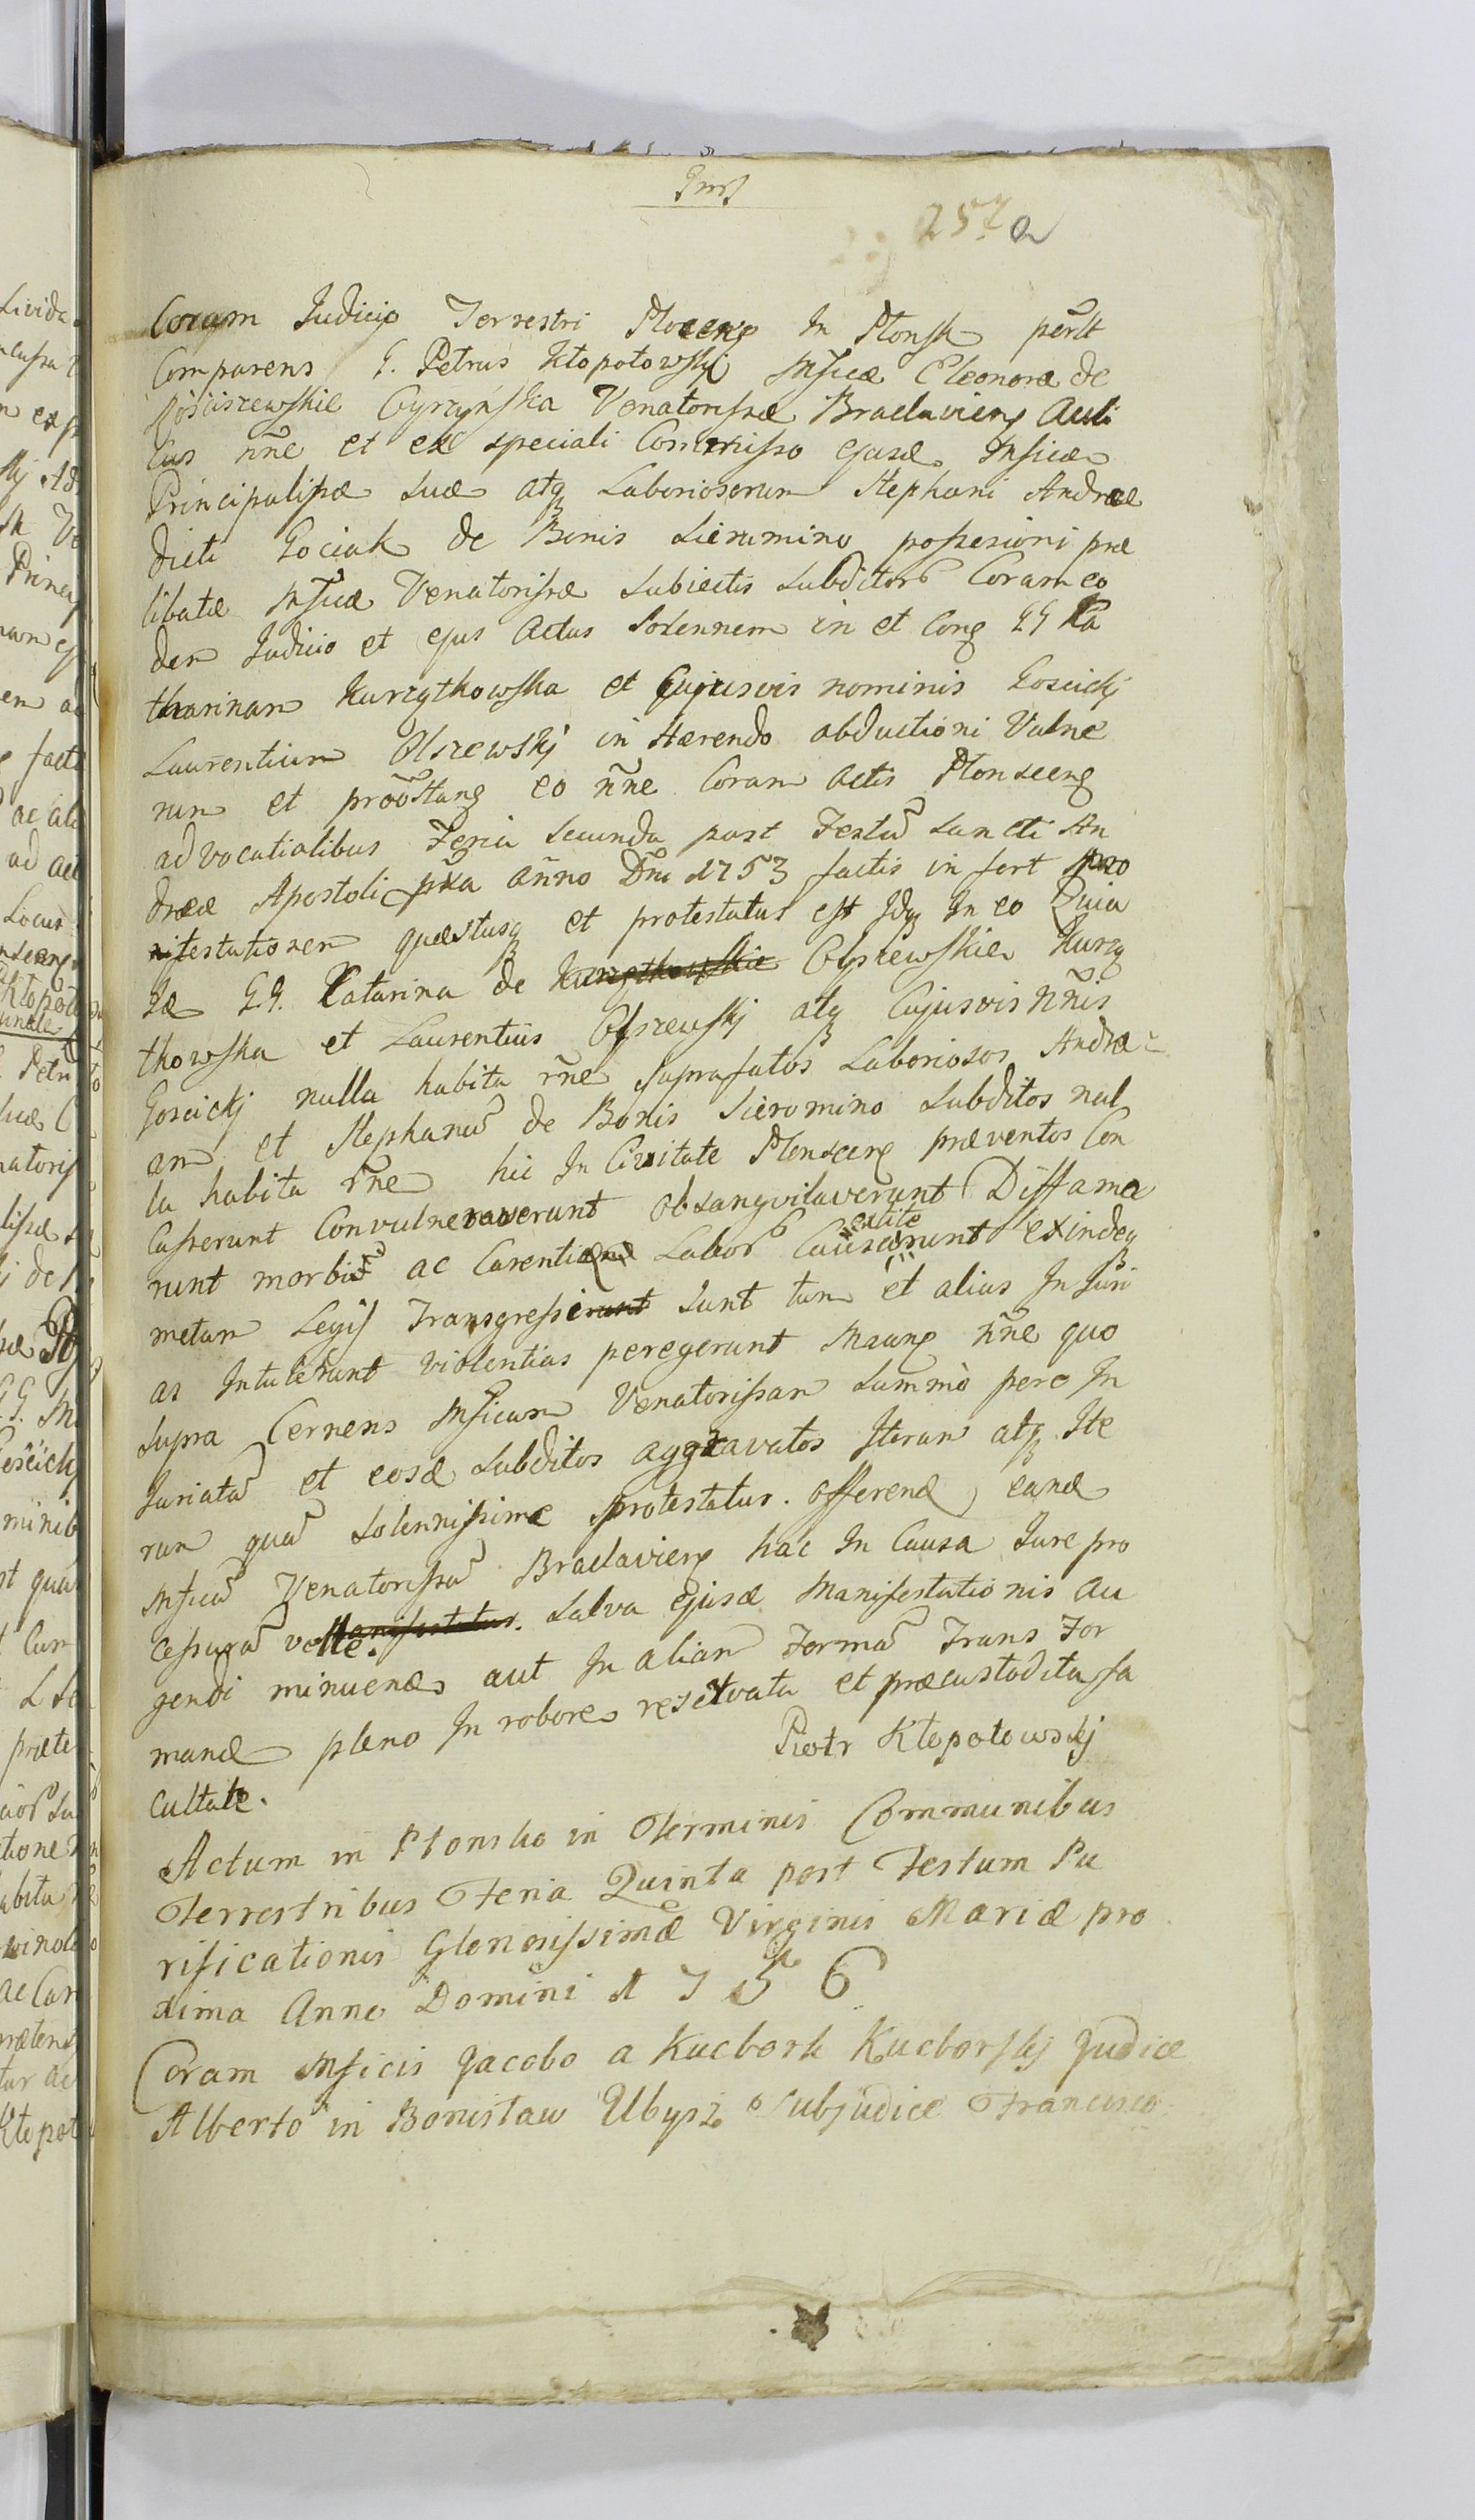 257 a
Coram Judicio Terrestri Plocenς In Plonsk perslt
Comparens G. Petrus Kłopotowskj Mficæ Eleonoræ de
Kościszewskie Cyrzyńska Venatorissæ Braclavienς Auli
cus nñe et ex speciali Commisso ejusd Mficæ
Principalissæ suæ atq Laboriosorum Stephani Andreæ
dicti Gociak de Bonis Sieromino possesioni præ
libatæ Mficæ Venatorissæ Subiectis Subditor Coram eo
dem Judicio et ejus Actus Solennem in et Conς GG Ka
tharinam Kurzątkowska et Cujusvis nominis Goscickj
Laurentium Olszewskj in Hærendo obductioni Vulne
rum et proõstanς eo nñe Coram Actis Plonscenς
advocatialibus Feria Secunda post Festũ Sancti An
dreæ Apostoli pxa Anno Dñi 1753 factis infert
nifestationem quæstusq et protestatus est Idq In eo Quia
G.G. Catarina de Kurzątkowskie Olszewskie Kurzą
tkowska et Laurentius Olszewskj atq Cujusvis Nñis
Goscickj nulla habita rñe Suprafatos Laboriosos Andre
am et Stephanũ de Bonis Sieromino Subditos nul
la habita rñe hic In Civitate Plonscenς præventos Con
cusserunt Convulneraverunt obsangvilaverunt Diffama
runt morbũ ac Carentiæ Labor Causarunt exindeq
metam Legis Transgressi sunt tum et alias Injuri
as Intulerunt violentias peregerunt Maunς nñe quo
supra Cernens Mficam Venatorissam Summò pere In
juriatũ et eosd Subditos aggravatos Iterum atq Ite
rum quã Solennissime protestatur. offerend eand
Mficũ Venatorissã Braclavienς hac In Causa Jure pro
cessurã velle. Manifestatur. Salva ejusd Manifestationis au
gendi minuend aut In aliam Formã Trans For
mand pleno In robore reservata et præcustodita fa
cultate.
Piotr Kłopotowskj
Actum in Płonsko in Terminis Communibus
Terrestribus Feria Quinta post Festum Pu
rificationis Gloriosissimæ Virginis Mariæ pro
xima Anno Domini 1756
Coram Mficis Jacobo a Kucbork Kucborskj Judice
Alberto in Bonisław Ubysz Subjudice Francisco